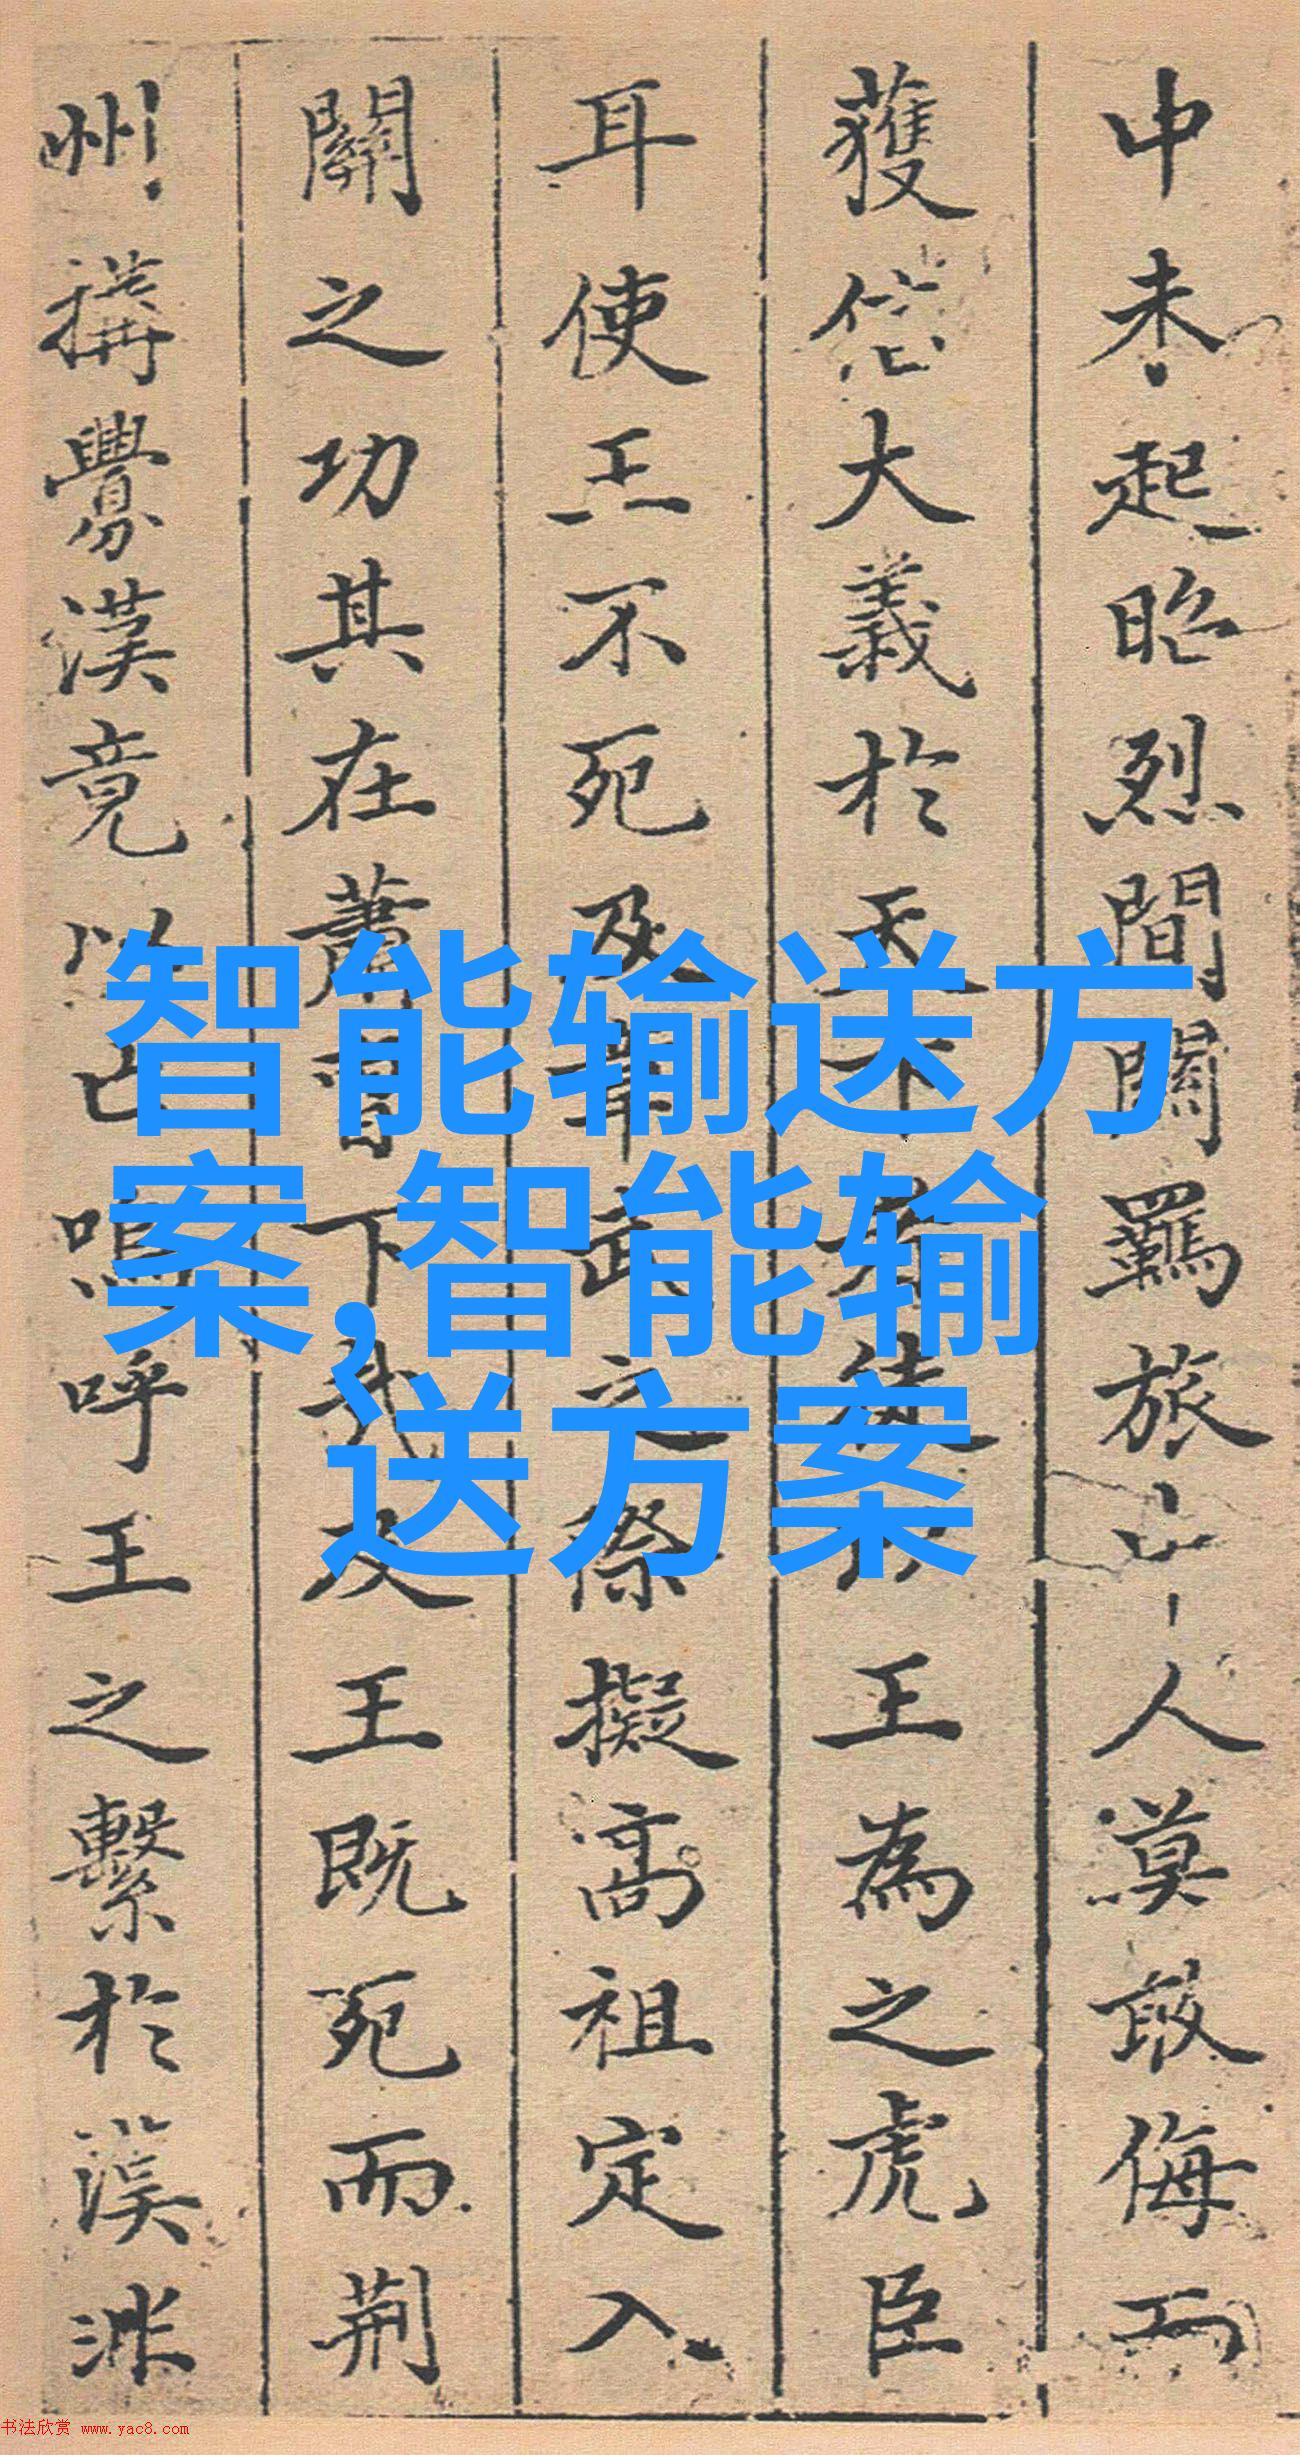 中未起昭烈間關羈旅人莫敢侮而
獲信大義於天下者徒以王為之虎臣
耳使王不死及章武之際擬高祖定入
關之功其在蕭曹下哉及王既死而荆
州搆釁漢竟以亡嗚呼王之繫於漢
智能输送方
案,智能输
送方案
书法欣赏 www.yac8.com